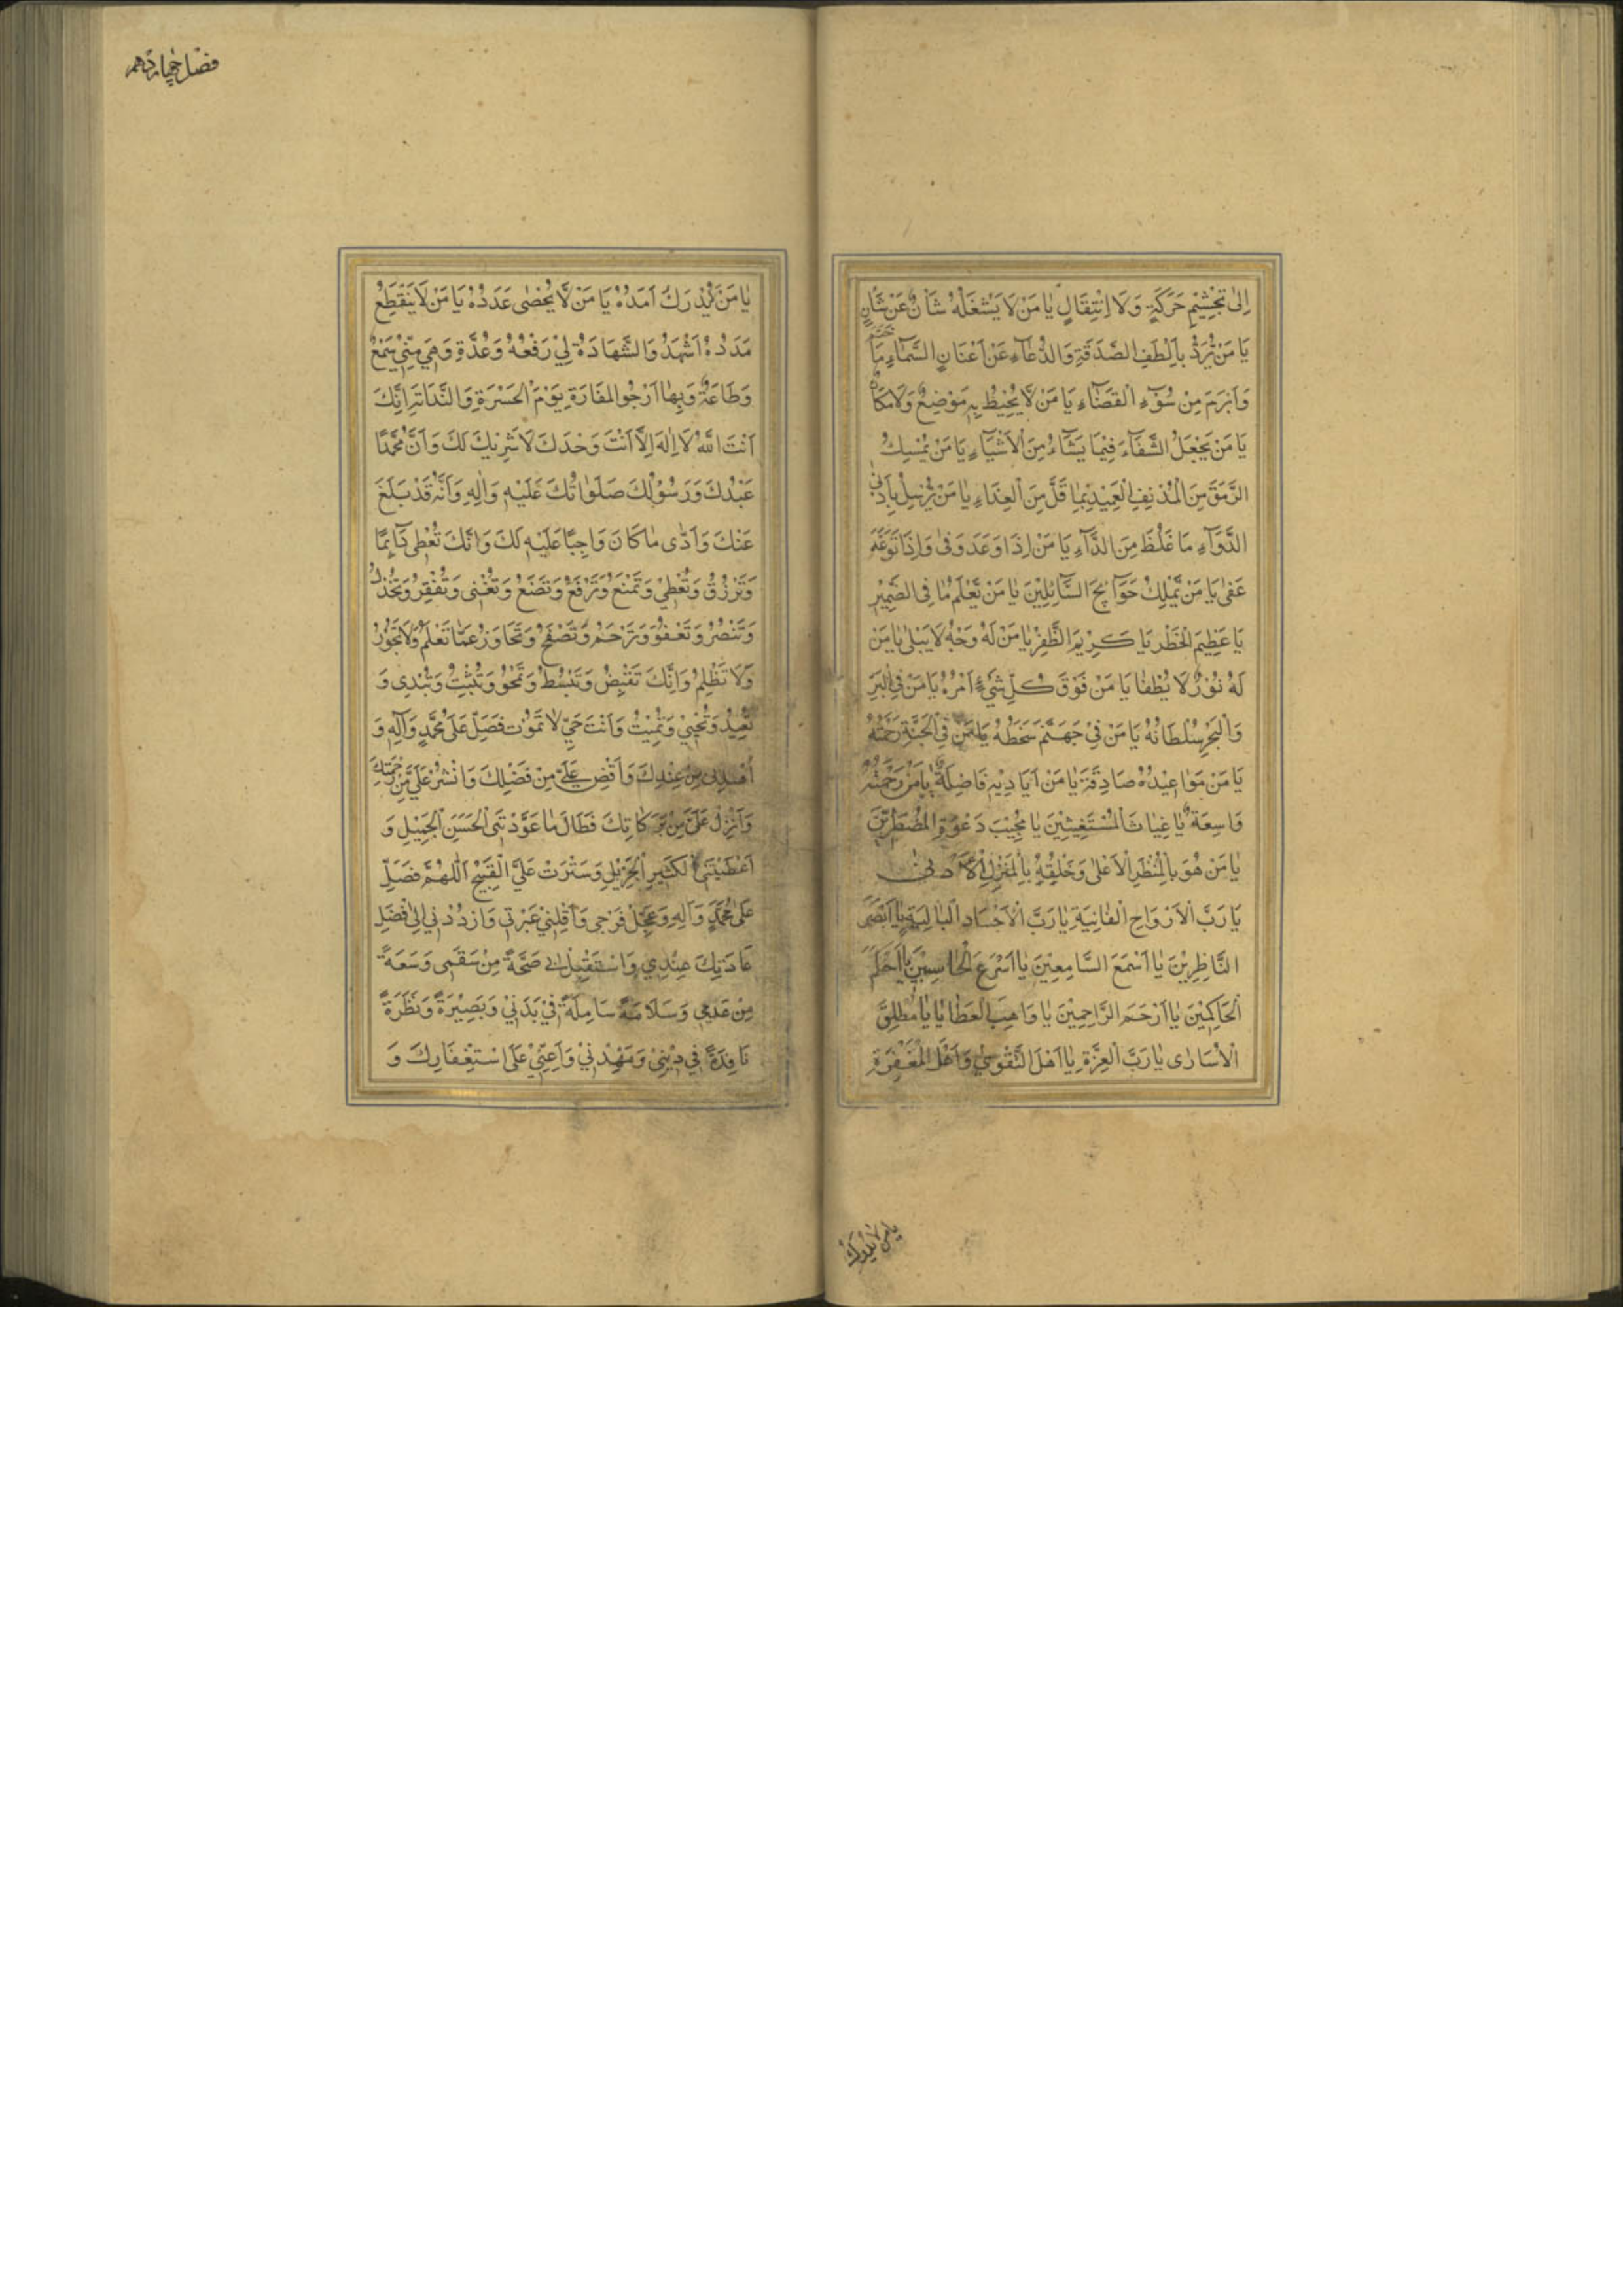 اِلىٰ تَجَشُّمِ حَرَكَةٍ وَلَا اِنْتِقَالٍ يَا مَنْ لَا يَشْغَلُهُ شَأْنٌ عَنْ شَأْنٍ
يَا مَنْ يَرُدُّ بِاَلْطَفِ الصَّدَقَةِ وَالدُّعَاءِ عَنْ اَعْنَانِ السَّمَاءِ مَا حَتَمَ
وَاَبْرَمَ مِنْ سُوٓءِ الْقَضَاءِ يَا مَنْ لَا يُحِيْطُ بِهِ مَوْضِعٌ وَلَا مَكَانٌ
يَا مَنْ يَجْعَلُ الشِّفَاءَ فِيْمَا يَشَاءُ مِنَ الْاَشْيَاءِ يَا مَنْ يُمْسِكُ
الرَّمَقَ مِنَ الْمُدْنِفِ الْعَمِيْدِ بِمَا قَلَّ مِنَ الْغِذَاءِ يَا مَنْ يُزِيْلُ بِاَدْنىٰ
الدَّوَآءِ مَا غَلُظَ مِنَ الدَّآءِ يَا مَنْ اِذَا وَعَدَ وَفىٰ وَاِذَا تَوَعَّدَ
عَفىٰ يَا مَنْ يَمْلِكُ حَوَآئِجَ السَّآئِلِيْنَ يَا مَنْ يَعْلَمُ مَا فِى الضَّمِيْرِ
يَا عَظِيْمَ الْخَطَرِ يَا كَرِيْمَ الظَّفَرِ يَا مَنْ لَهُ وَجْهٌ لَا يَبْلىٰ يَا مَنْ
لَهُ نُوْرٌ لَا يُطْفىٰ يَا مَنْ فَوْقَ كُلِّ شَيْءٍ اَمْرُهُ يَا مَنْ فِى الْبَرِّ
وَالْبَحْرِ سُلْطَانُهُ يَا مَنْ فِيْ جَهَنَّمَ سَخَطُهُ يَا مَنْ فِى الْجَنَّةِ رَحْمَتُهُ
يَا مَنْ مَوَاعِيْدُهُ صَادِقَةٌ يَا مَنْ اَيَادِيْهِ فَاضِلَةٌ يَا مَنْ رَحْمَتُهُ
وَاسِعَةٌ يَا غِيَاثَ الْمُسْتَغِيْثِيْنَ يَا مُجِيْبَ دَعْوَةِ الْمُضْطَرِّيْنَ
يَا مَنْ هُوَ بِالْمَنْظَرِ الْاَعْلىٰ وَخَلْقُهُ بِالْمَنْزِلِ الْاَدْنىٰ
يَا رَبَّ الْاَرْوَاحِ الْفَانِيَةِ يَا رَبَّ الْاَجْسَادِ الْبَالِيَةِ يَا اَبْصَرَ
النَّاظِرِيْنَ يَا اَسْمَعَ السَّامِعِيْنَ يَا اَسْرَعَ الْحَاسِبِيْنَ يَا اَحْكَمَ
الْحَاكِمِيْنَ يَا اَرْحَمَ الرَّاحِمِيْنَ يَا وَاهِبَ الْعَطَايَا يَا مُطْلِقَ
الْاُسَارىٰ يَا رَبَّ الْعِزَّةِ يَا اَهْلَ التَّقْوىٰ وَاَهْلَ الْمَغْفِرَةِ
يا من لا يدرك
فصل چهاردهم
يَا مَنْ لَا يُدْرَكُ اَمَدُهُ يَا مَنْ لَا يُحْصىٰ عَدَدُهُ يَا مَنْ لَا يَنْقَطِعُ
مَدَدُهُ اَشْهَدُ وَالشَّهَادَةُ لِيْ رَفْعَةٌ وَعُدَّةٌ وَهِيَ مِنِّيْ سَمْعٌ
وَطَاعَةٌ وَبِهَا اَرْجُو الْمَفَازَةَ يَوْمَ الْحَسْرَةِ وَالنَّدَامَةِ اِنَّكَ
اَنْتَ اللّٰهُ لَا اِلٰهَ اِلَّا اَنْتَ وَحْدَكَ لَا شَرِيْكَ لَكَ وَاَنَّ مُحَمَّدًا
عَبْدُكَ وَرَسُوْلُكَ صَلَوَاتُكَ عَلَيْهِ وَاٰلِهِ وَاَنَّهُ قَدْ بَلَّغَ
عَنْكَ وَاَدّٰى مَا كَانَ وَاجِبًا عَلَيْهِ لَكَ وَاِنَّكَ تُعْطِى دَآئِمًا
وَتَرْزُقُ وَتُعْطِيْ وَتَمْنَعُ وَتَرْفَعُ وَتَضَعُ وَتُغْنِى وَتُفْقِرُ وَتَخْذُلُ
وَتَنْصُرُ وَتَعْفُوْ وَتَرْحَمُ وَتَصْفَحُ وَتَجَاوَزُ عَمَّا تَعْلَمُ وَلَا تَجُوْرُ
وَلَا تَظْلِمُ وَاِنَّكَ تَقْبِضُ وَتَبْسُطُ وَتَمْحُوْ وَتُثْبِتُ وَتُبْدِى وَ
تُعِيْدُ وَتُحْيِيْ وَتُمِيْتُ وَاَنْتَ حَيٌّ لَا تَمُوْتُ فَصَلِّ عَلىٰ مُحَمَّدٍ وَآلِهِ وَ
اهْدِنِى مِنْ عِنْدِكَ وَاَفِضْ عَلَيَّ مِنْ فَضْلِكَ وَانْشُرْ عَلَيَّ مِنْ رَحْمَتِكَ
وَاَنْزِلْ عَلَيَّ مِنْ بَرَكَاتِكَ فَطَالَ مَا عَوَّدْتَنِى الْحَسَنَ الْجَمِيْلَ وَ
اَعْطَيْتَنِى الْكَثِيْرَ الْجَزِيْلَ وَسَتَرْتَ عَلَيَّ الْقَبِيْحَ اَللّٰهُمَّ فَصَلِّ
عَلىٰ مُحَمَّدٍ وَآلِهِ وَعَجِّلْ فَرَجِى وَاَقِلْنِيْ عَثْرَتِى وَازْدُدْنِي اِلىٰ اَفْضَلِ
عَادَتِكَ عِنْدِي وَاسْتَقْبِلْ بِى صِحَّةً مِنْ سَقَمِى وَسَعَةً
مِنْ عَدَمِى وَسَلَامَةً شَامِلَةً فِيْ بَدَنِيْ وَبَصِيْرَةً وَنَظْرَةً
نَافِذَةً فِي دِيْنِيْ وَمَهِّدْنِيْ وَاَعِنِّيْ عَلَى اسْتِغْفَارِكَ وَ